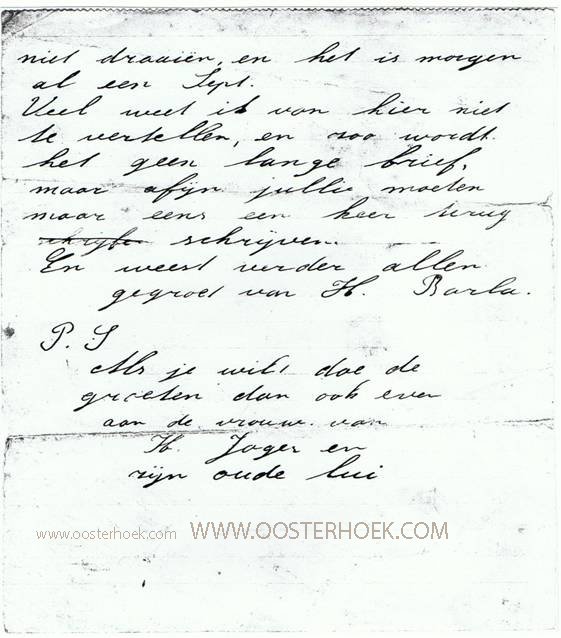 niet draaiën, en het is morgen
al een Sept.
Veel weet ik van hier niet
te vertellen, en zoo wordt
het geen lange brief,
maar afijn jullie moeten
maar eens een keer terug
schrijfen schrijven.
En weest verder allen
gegroet van H. Barla.
P. S
Als je wilt doe de
groeten dan ook even
aan de vrouw van
H. Jager en
zijn oude lui
www.oosterhoek.com WWW.OOSTERHOEK.COM